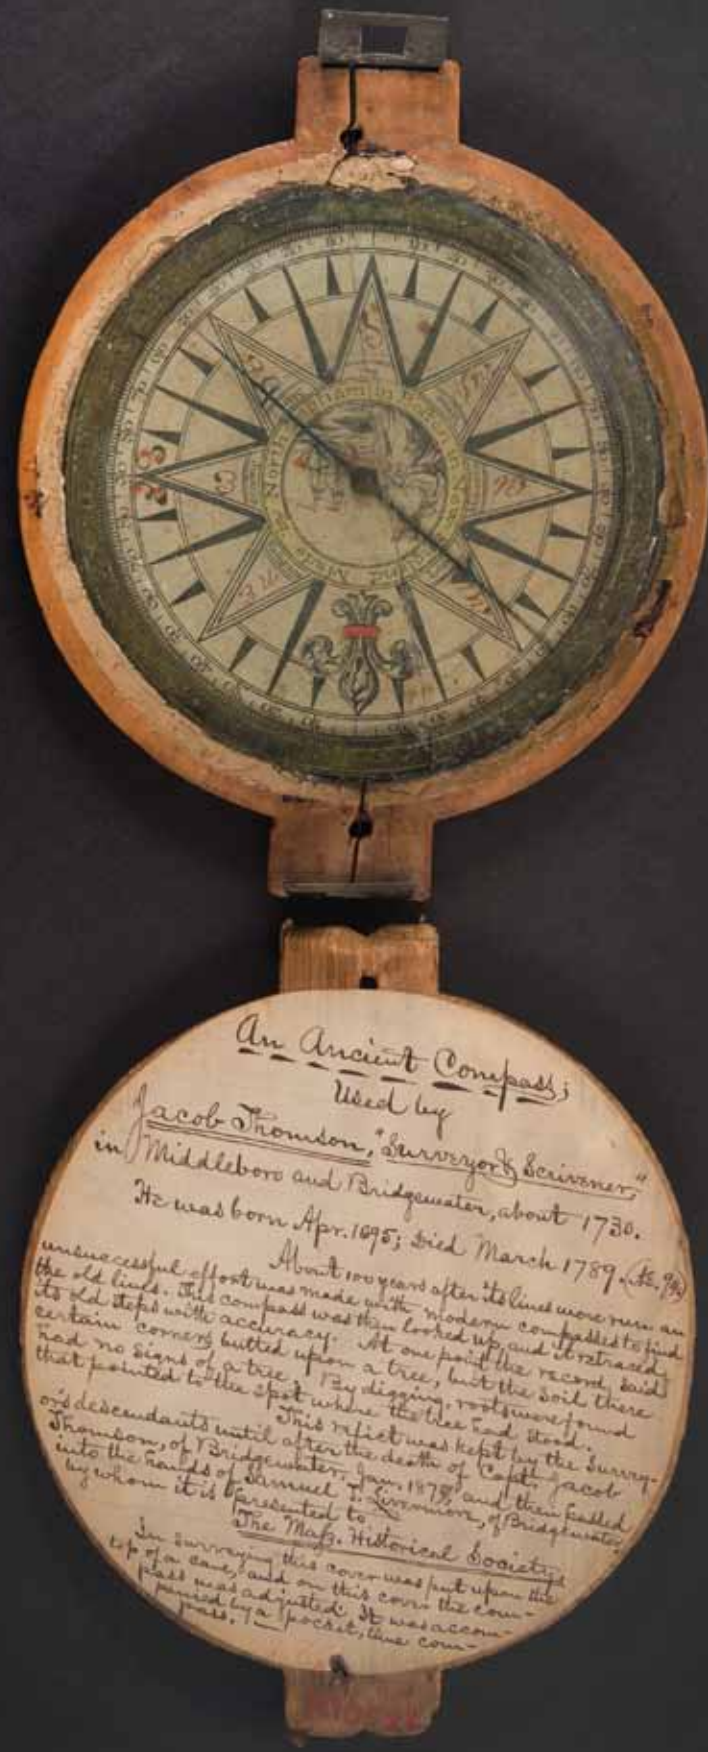 North
in Boston New England
An Ancient Compass;
Used by
Jacob Thomson, "Surveyor & Scrivener,"
in Middleboro and Bridgewater, about 1730.
He was born Apr. 1695; Died March 1789. (AE. 94)
About 100 years after its lines were run an
unsuccessful effort was made with modern compasses to find
the old lines. This compass was then looked up, and it retraced
its old steps with accuracy. At one point the record said
certain corners butted upon a tree, but the soil there
had no signs of a tree. By digging, roots were found
that pointed to the spot where the tree had stood.
This relict was kept by the Survey-
or's descendants until after the death of Capt. Jacob
Thomson, of Bridgewater, Jan. 1875, and then passed
into the hands of Samuel T. Livermore, of Bridgewater,
by whom it is presented to
The Mass. Historical Society.
In surveying this cover was put upon the
top of a cane, and on this cover the com-
pass was adjusted. It was accom-
panied by a pocket, line com-
pass.